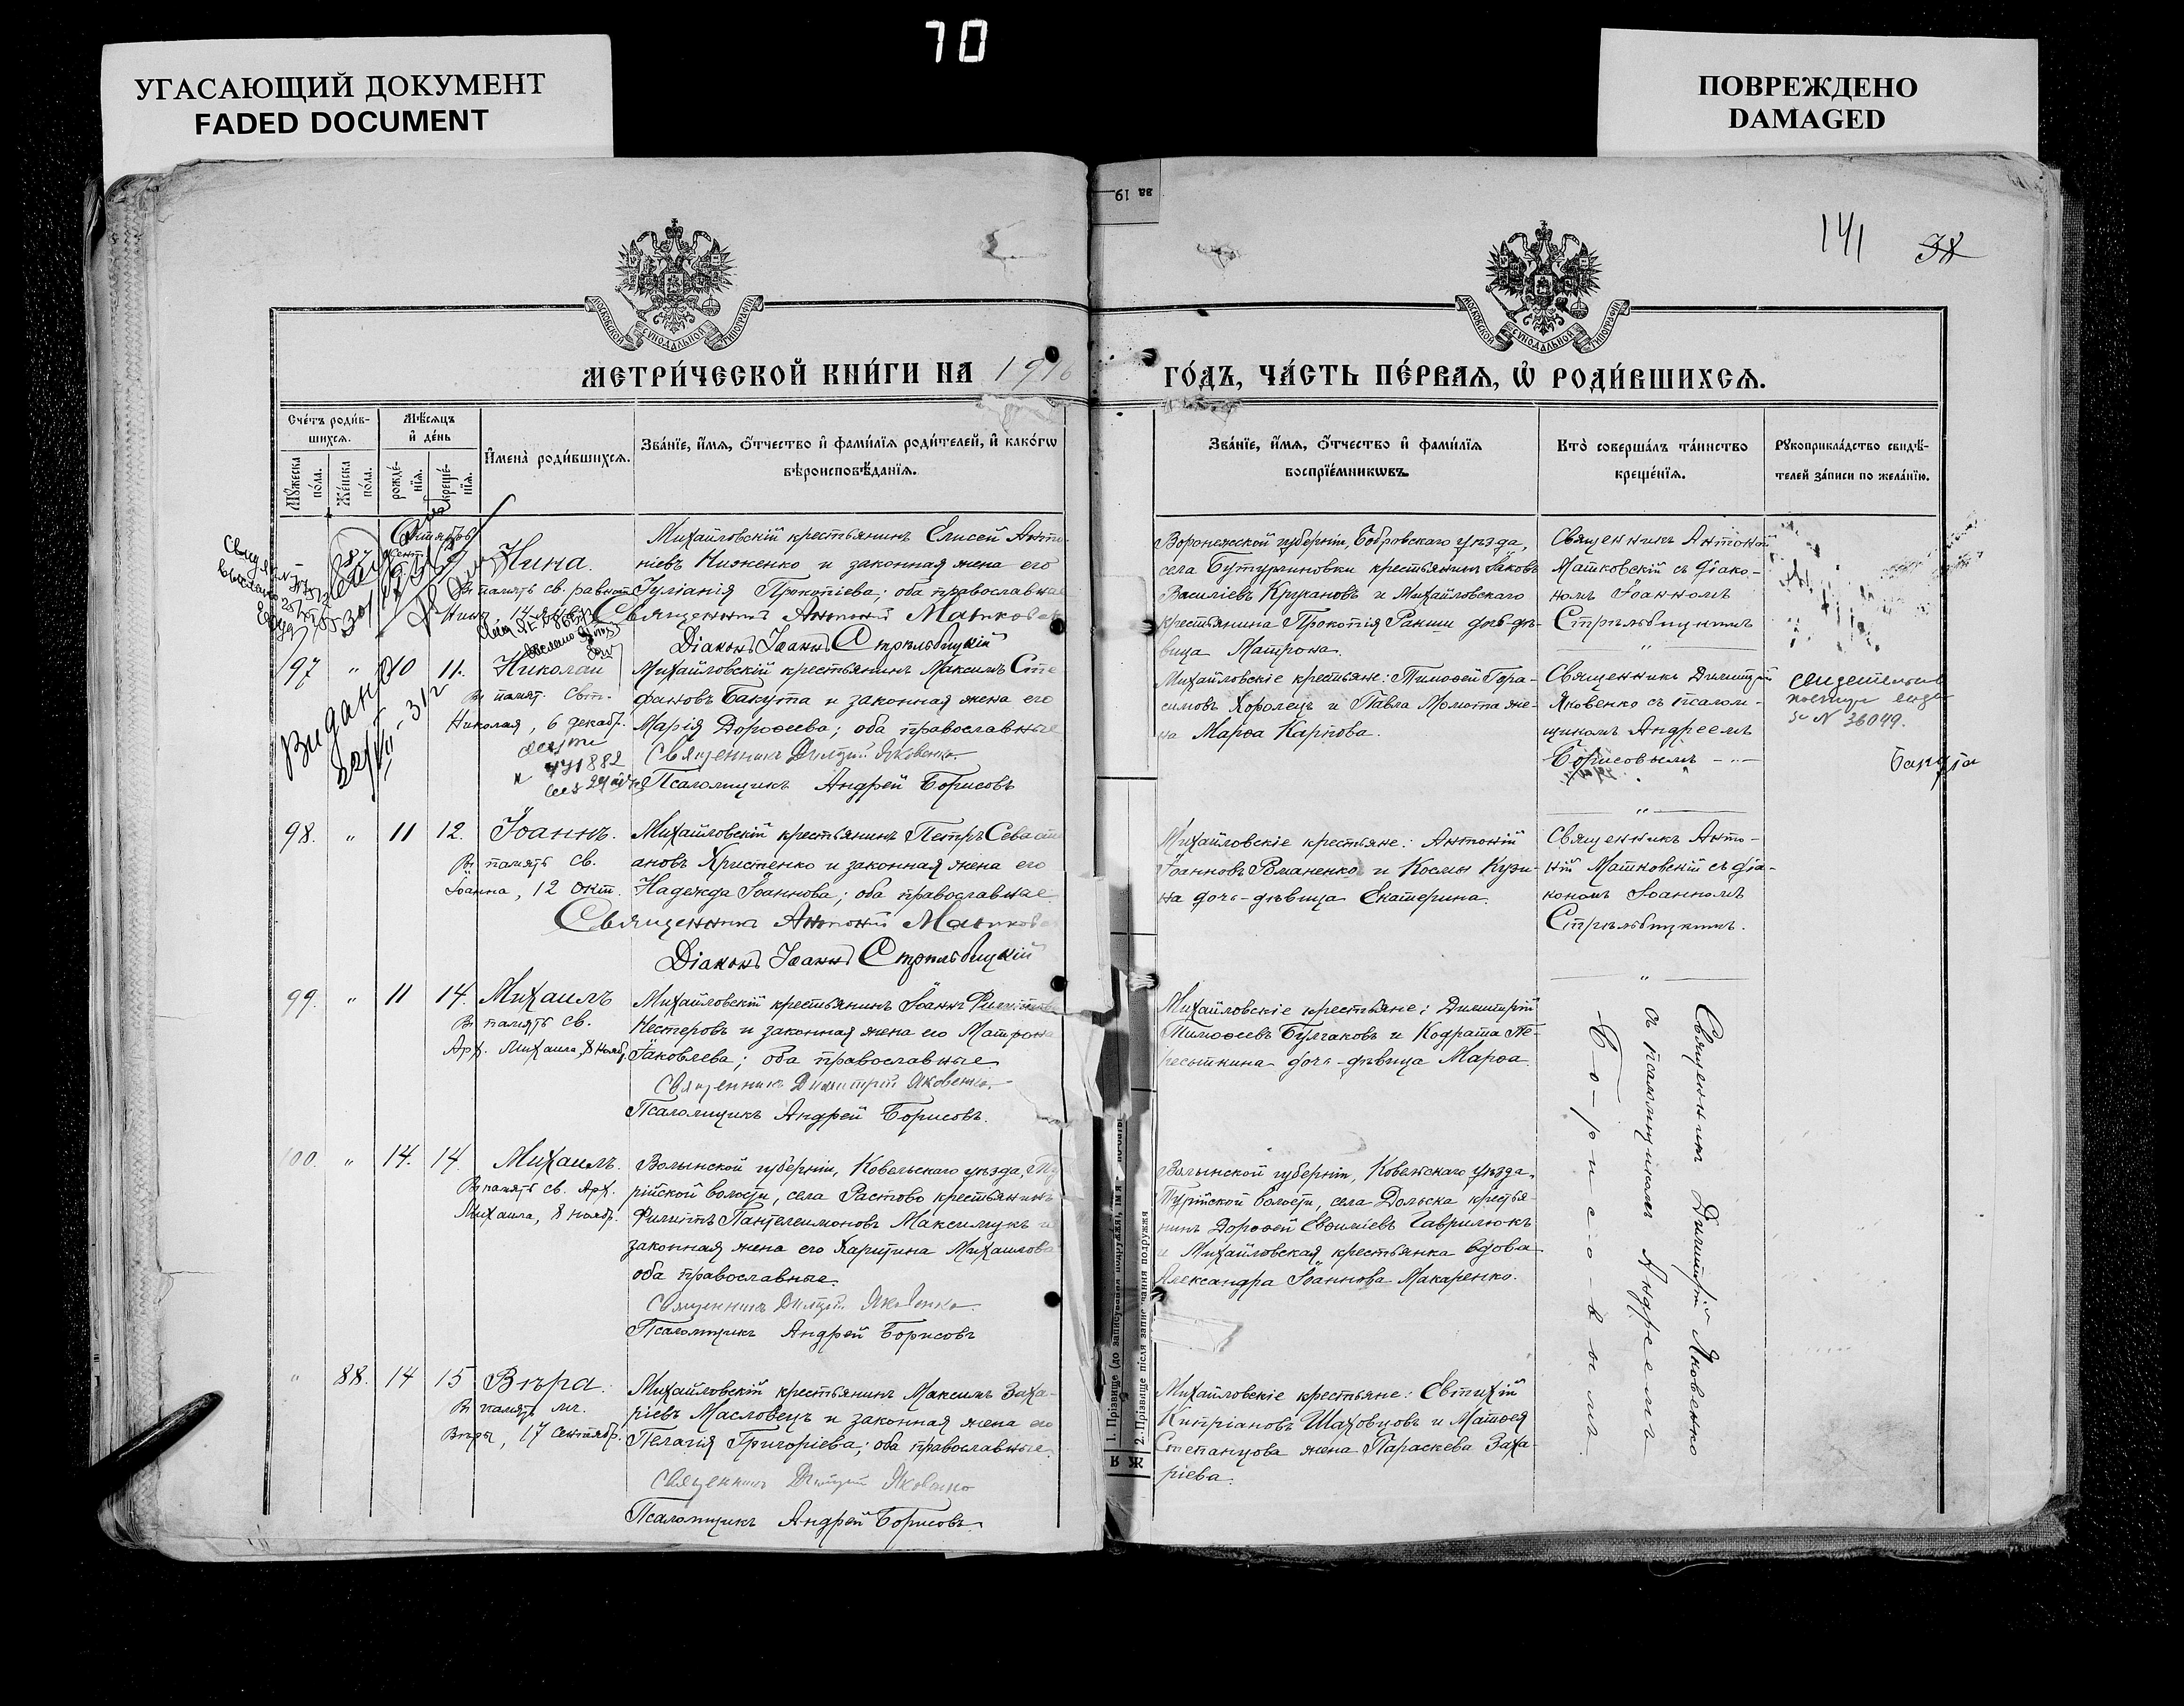 70
УГАСАЮЩИЙ ДОКУМЕНТ
FADED DOCUMENT
ПОВРЕЖДЕНО
DAMAGED
за 19
141
МОСКОВСКОЙ СѴНОДАЛЬНОЙ ТИПОГРАФІИ
МОСКОВСКОЙ СѴНОДАЛЬНОЙ ТИПОГРАФІИ
МЕТРИ́ЧЕСКОЙ КНИ́ГИ НА 1916
ГО́ДЪ, ЧА́СТЬ ПЕ́РВАѦ, Ѡ҆ РОДИ́ВШИХСѦ.
Сче́тъ роди́в-
шихсѧ.
Мꙋ́жеска по́ла.
Же́нска по́ла.
Мѣ́сѧцъ
и҆ де́нь
рожде́-
нїѧ.
креще́-
нїѧ.
И҆мена̀ роди́вшихсѧ.
Зва́нїе, и҆́мѧ, ѻ҆́тчество и҆ фами́лїѧ роди́телей, и҆ како́гѡ
вѣроисповѣ́данїѧ.
Зва́нїе, и҆́мѧ, ѻ҆́тчество и҆ фами́лїѧ
воспрїе́мникѡвъ.
Кто̀ соверша́лъ та́инство
креще́нїѧ.
Рꙋкоприкла́дство свидѣ́-
телей за́писи по жела́нїю.
87
Нина.
Въ память св. равноап.
Нины, 14 янв.
Михайловскій крестьянинъ Елисей Анто-
ніевъ Ниженко и законная жена его
Іуліанія Прокопіева; оба православные
Священникъ Антоній Матковскій
Діаконъ Іоаннъ Стрѣльбицкій
Воронежской губерніи, Бобровскаго уѣзда,
села Бутурлиновки крестьянинъ Іаковъ
Василіевъ и Михайловскаго
крестьянина Прокопія дочь-дѣ-
вица Матрона.
Священникъ Антоній
Матковскій съ діако-
номъ Іоанномъ
Стрѣльбицкимъ
97 " 10 11. Николай
Въ памят. Свт.
Николая, 6 декабр.
Михайловскій крестьянинъ Максимъ Сте-
фановъ Бакута и законная жена его
Марія Дорофеева; оба православные
Священникъ Димитрій Яковенко
Псаломщикъ Андрей Борисовъ
Михайловскіе крестьяне: Тимофей Гера-
симовъ Королецъ и Павла же-
на Марѳа Карпова.
Священникъ Димитрій
Яковенко съ псалом-
щикомъ Андреемъ
Борисовымъ
№ 36049.
Видано
312
98. " 11 12. Іоаннъ.
Въ память св.
Іоанна, 12 окт.
Михайловскій крестьянинъ Петръ Севасти-
ановъ Христенко и законная жена его
Надежда Іоаннова; оба православные
Священникъ Антоній Матковскій
Діаконъ Іоаннъ Стрѣльбицкій
Михайловскіе крестьяне: Антоній
Іоанновъ Романенко и Космы Кузи-
на дочь-дѣвица Екатерина.
Священникъ Анто-
ній Матковскій съ діа-
кономъ Іоанномъ
Стрѣльбицкимъ.
99. " 11 14. Михаилъ
Въ память св.
Арх. Михаила, 8 ноябр.
Михайловскій крестьянинъ Іоаннъ
Нестеровъ и законная жена его Матрона
Іаковлева; оба православные
Священникъ Димитрій Яковенко
Псаломщикъ Андрей Борисовъ.
Михайловскіе крестьяне: Димитрій
Тимофеевъ Булгаковъ и Кодрата Пе-
ресыпкина дочь-дѣвица Марѳа
Священникъ Димитрій Яковенко
съ псаломщикомъ Андреемъ
Борисовымъ
100. " 14. 14. Михаилъ.
Въ память св. Арх.
Михаила, 8 ноябр.
Волынской губерніи, Ковельскаго уѣзда, Ту-
рійской волости, села Растово крестьянинъ
Филиппъ Пантелеимоновъ Максимукъ и
законная жена его Харитина Михаилова
оба православные.
Священникъ Димитрій Яковенко
Псаломщикъ Андрей Борисовъ
Волынской губерніи, Ковельскаго уѣзда,
Турійской волости, села Дольска крестья-
нинъ Дорофей Евфиміевъ Гаврилюкъ
и Михайловская крестьянка вдова
Александра Іоаннова Макаренко.
" 88. 14 15 Вѣра.
Въ память мч.
Вѣры, 17 сентябр.
Михайловскій крестьянинъ Максимъ Заха-
ріевъ Масловецъ и законная жена его
Пелагія Григоріева; оба православные
Священникъ Димитрій Яковенко
Псаломщикъ Андрей Борисовъ
Михайловскіе крестьяне: Евтихій
Кипріановъ Шаховцовъ и Матѳея
Степанцова жена Параскева Заха-
ріева.
1. Прізвище (до записування подружжя), імя
2. Прізвище після записування подружжя